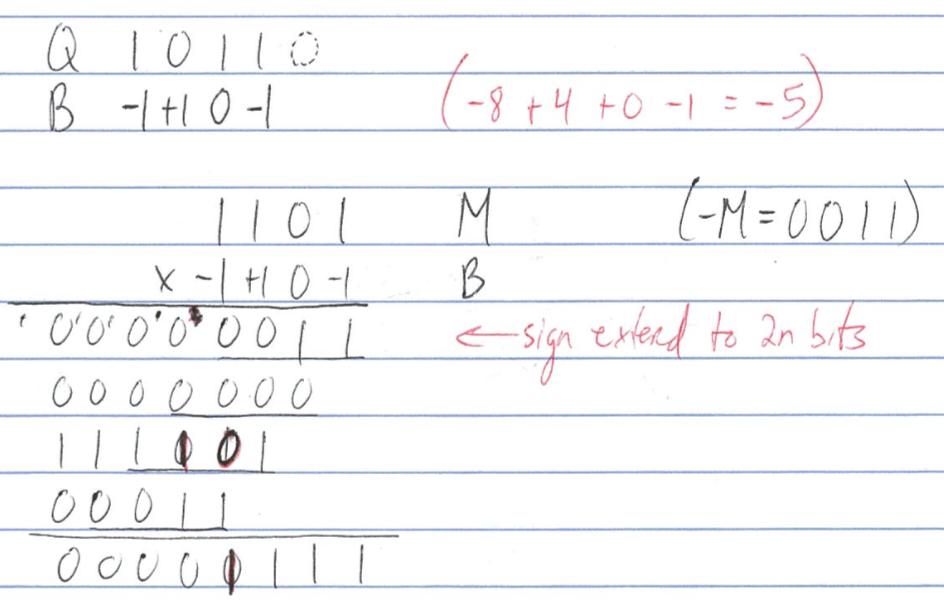 Q 1 0 1 1 0
B -1 +1 0 -1 (-8 + 4 + 0 - 1 = -5)
1 1 0 1 M (-M = 0 0 1 1)
x -1 +1 0 -1 B
0 0 0 0 0 0 1 1 ← sign extend to 2n bits
0 0 0 0 0 0 0
1 1 1 1 0 1
0 0 0 1 1
0 0 0 0 1 1 1 1